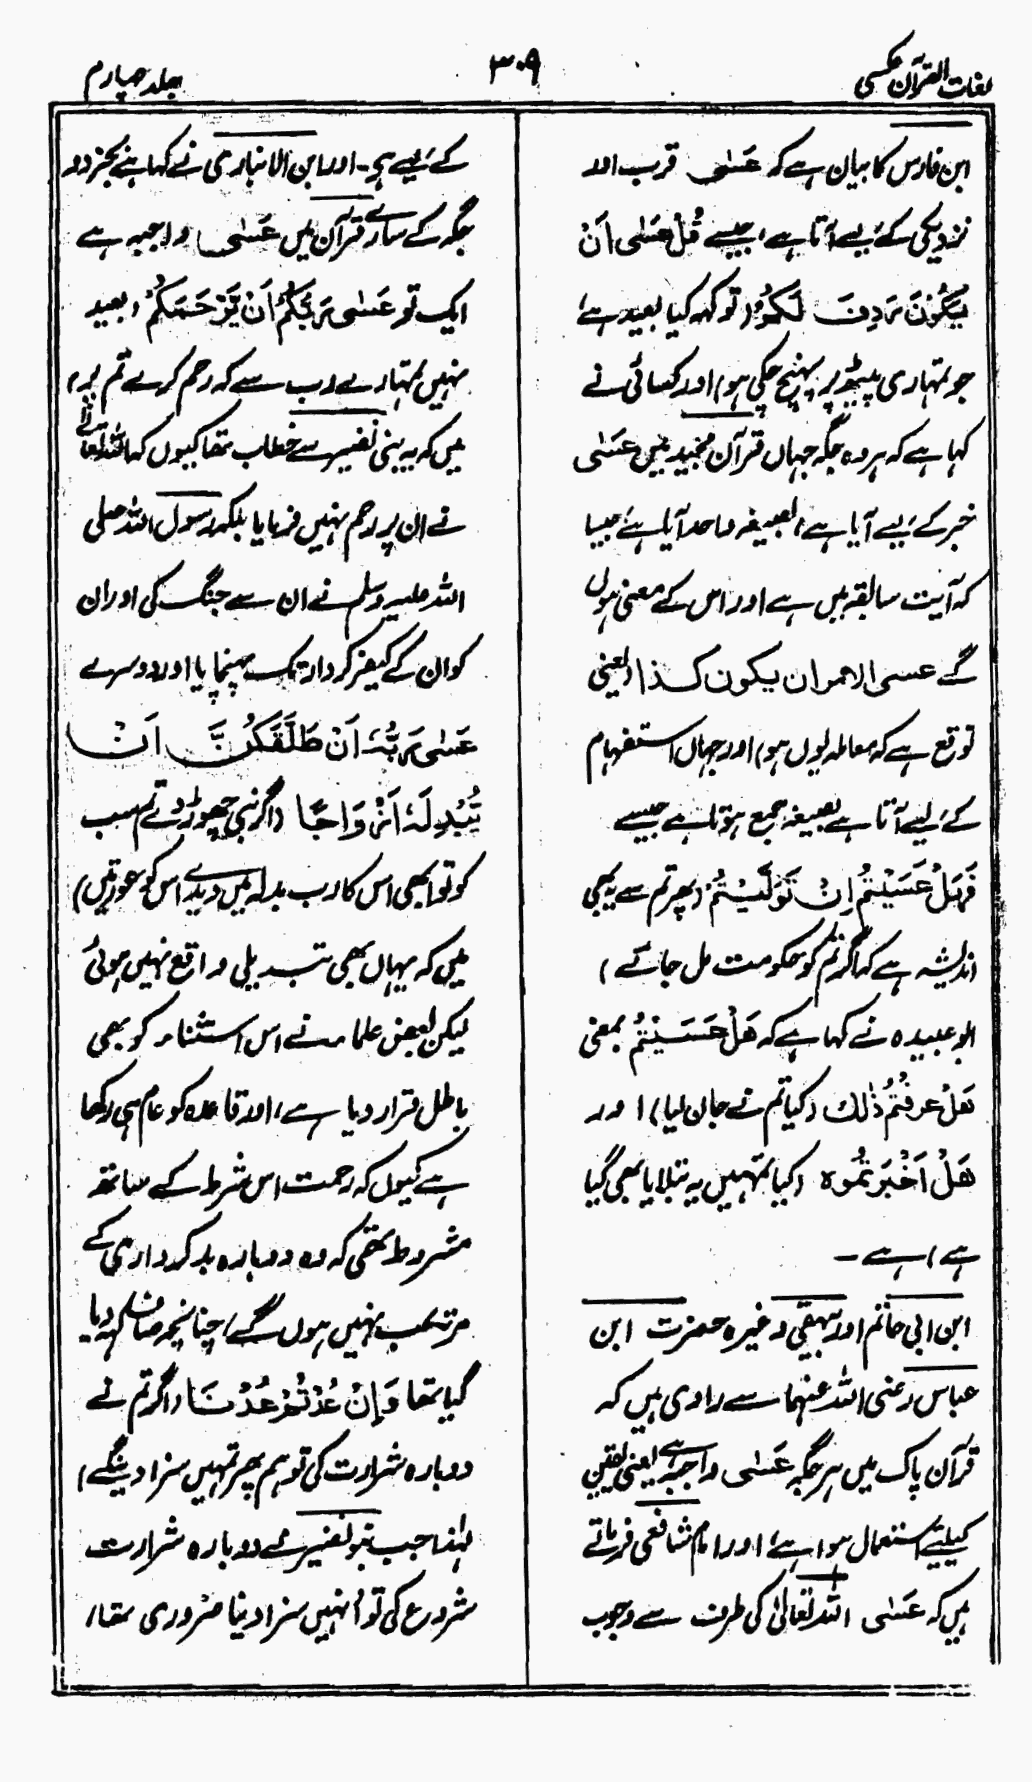 لغات القرآن عکسی
۳۰۹
جلد چہارم
ابن فارس کا بیان ہے کہ عَسٰی قرب اور
نزدیکی کے لیے آتا ہے، جیسے قُلْ عَسٰی اَنْ
یَّکُوْنَ رَدِفَ لَکُمْ (تو کہہ کیا بعید ہے
جو تمہاری پیٹھ پر پہنچ چکی ہو) اور کسائی نے
کہا ہے کہ ہر وہ جگہ جہاں قرآن مجید میں عَسٰی
خبر کے لیے آیا ہے، بصیغہ واحد آیا ہے جیسا
کہ آیت سابقہ میں ہے اور اس کے معنی ہوں
گے عسی الامران یکون کذا (یعنی
توقع ہے کہ معاملہ یوں ہو) اور جہاں استفہام
کے لیے آتا ہے بصیغہ جمع ہوتا ہے جیسے
فَہَلْ عَسَیْتُمْ اِنْ تَوَلَّیْتُمْ (پھر تم سے یہ بھی
اندیشہ ہے کہ اگر تم کو حکومت مل جائے)
ابو عبیدہ نے کہا ہے کہ ھَلْ عَسَیْتُمْ بمعنی
ھَلْ عرفتُمْ ذٰلک (کیا تم نے جان لیا) اور
ھَلْ اَخْبَرتُموہ (کیا تمہیں یہ بتلایا بھی گیا
ہے) ہے ۔
ابن ابی حاتم اور بیہقی وغیرہ حضرت ابن
عباس رضی اللہ عنہما سے راوی ہیں کہ
قرآن پاک میں ہر جگہ عَسٰی واجبہ ہے یعنی یقین
کیلئے استعمال ہوا ہے، اور امام شافعی فرماتے
ہیں کہ عَسٰی اللہ تعالیٰ کی طرف سے وجوب
کے لیے ہے۔ اور ابن الانباری نے کہا ہے بجز دو
جگہ کے سارے قرآن میں عَسٰی واجبہ ہے
ایک تو عَسٰی رَبُّکُمْ اَنْ یَّرْحَمَکُمْ (بعید
نہیں تمہارے رب سے کہ رحم کرے تم پر)
میں کہ یہ بنی نضیر سے خطاب تھا کیوں کہ اللہ تعالیٰ
نے ان پر رحم نہیں فرمایا بلکہ رسول اللہ صلی
اللہ علیہ وسلم نے ان سے جنگ کی اور ان
کو ان کے کیفر کردار تک پہنچایا اور دوسرے
عَسٰی رَبُّہٗ اَنْ طَلَّقَکُنَّ اَنْ
یُّبْدِلَہٗ اَزْوَاجًا (اگر نبی چھوڑ دے تم سب
کو تو ابھی اس کا رب بدلہ میں دیدے اس کو عورتیں)
میں کہ یہاں بھی تبدیلی واقع نہیں ہوئی
لیکن بعض علماء نے اس استثناء کو بھی
باطل قرار دیا ہے، اور قاعدہ کو عام ہی رکھا
ہے کیوں کہ رحمت اس شرط کے ساتھ
مشروط تھی کہ وہ دوبارہ بدکرداری کے
مرتکب نہیں ہوں گے، چنانچہ صاف کہہ دیا
گیا تھا وَاِنْ عُدْتُّمْ عُدْنَا (اگر تم نے
دوبارہ شرارت کی تو ہم پھر تمہیں سزا دینگے)
لہٰذا جب بنو نضیر نے دوبارہ شرارت
شروع کی تو اُنہیں سزا دینا ضروری تھا،